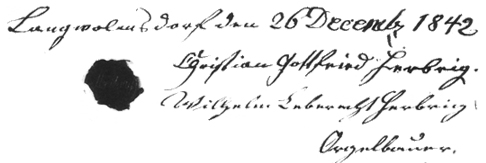 Langwolmsdorf den 26 Decemb, 1842
Christian Gottfried Herbrig.
Wilhelm Leberecht Herbrig
Orgelbauer.